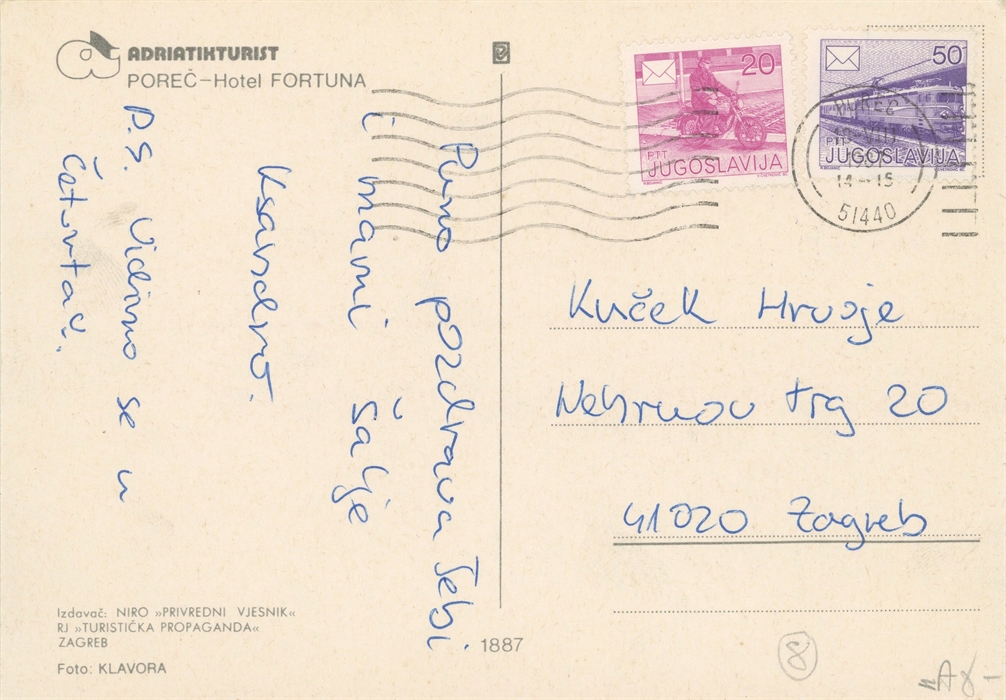 ADRIATIKTURIST
POREČ-Hotel FORTUNA
Puno pozdrava Tebi
i mami šalje
Ksandro.
P.S. Vidimo se u
četvrtak.
20
PTT
JUGOSLAVIJA
50
PTT
JUGOSLAVIJA
POREČ
14-15
51440
Kuček Hrvoje
Nehruov trg 20
41020 Zagreb
Izdavač: NIRO »PRIVREDNI VJESNIK«
RJ »TURISTIČKA PROPAGANDA«
ZAGREB
Foto: KLAVORA
1887
8